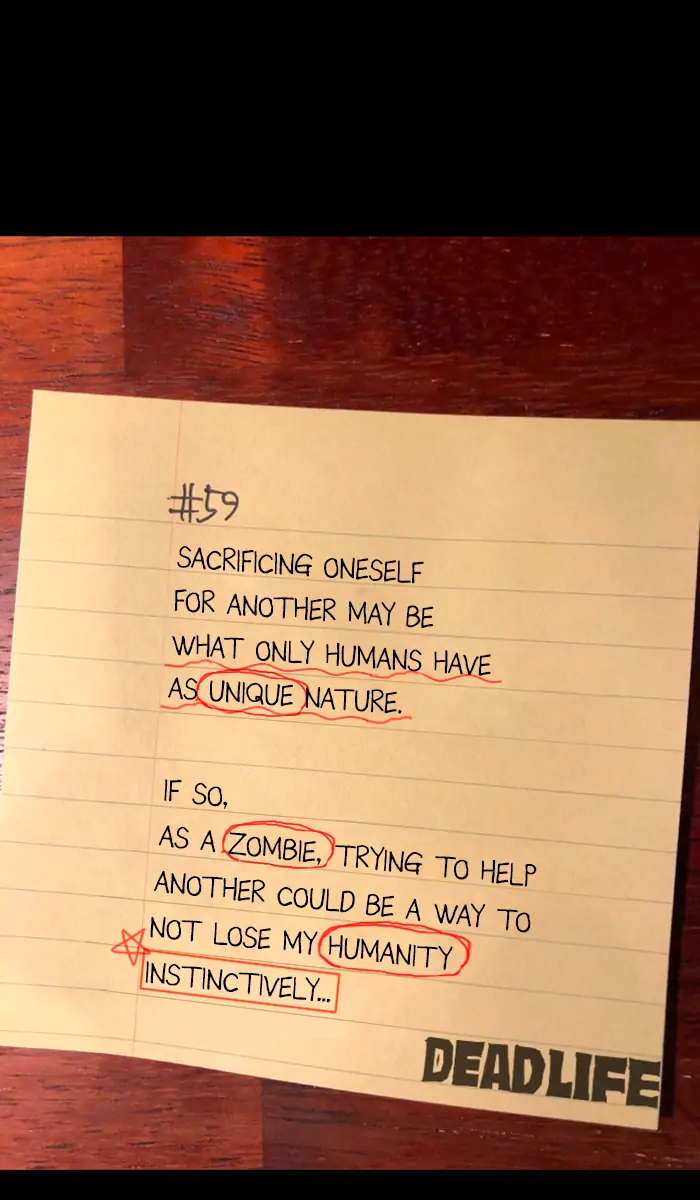 #59
SACRIFICING ONESELF
FOR ANOTHER MAY BE
WHAT ONLY HUMANS HAVE
AS UNIQUE NATURE.
IF SO,
AS A ZOMBIE, TRYING TO HELP
ANOTHER COULD BE A WAY TO
NOT LOSE MY HUMANITY
INSTINCTIVELY...
DEADLIFE